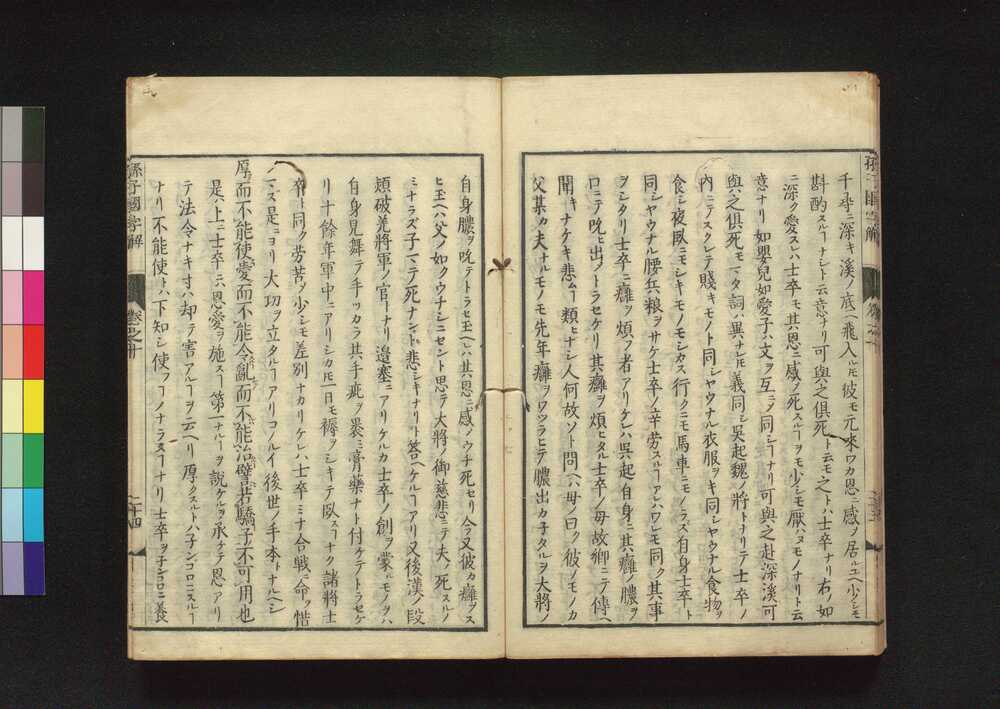 千尋ニ深キ溪ノ底ヘ飛入ルﾄﾓ彼モ元來ワカ恩ニ感ヲ居ルユヘ少シモ
斟酌スルヿナシト云意ナリ可與之俱死ト云モ之トハ士卒ナリ右ノ如
ニ深ク愛スレハ士卒モ其恩ニ感ノ死スルヿヲモ少シモ厭ハヌモノナリト云
意ナリ如嬰兒如愛子ハ文ヲ互ニノ同シヿナリ可與之赴深溪可
與之俱死モマタ詞ハ異ナレﾄﾓ義同シ吳起魏ノ將トナリテ士卒ノ
內ニテスクレテ賤キモノト同シヤウナル衣服ヲキ同シヤウナル食物ヲ
食シ夜臥ニモシキモノモシカス行クニモ馬車ニモノラズ自身士卒ト
同シヤウナル腰兵粮ヲサケ士卒ノ辛勞スルヿアレハワレモ同ク其事
ヲシタリ士卒ニ癰ヲ煩フ者アリケレハ吳起自身ニ其癰ノ膿ヲ
口ニテ吮ヒ出ノトラセケリ其癰ヲ煩ヒタル士卒ノ母故鄉ニテ傳ヘ
聞キナケキ悲ムヿ類ヒナシ人何故ソト問ヘハ母ノ曰ク彼ノモノカ
父某カ夫ナルモノモ先年癰ヲワツラヒテ膿出カ子タルヲ大將ノ
自身膿ヲ吮テトラセ玉ヘレハ其恩ニ感ノウチ死セリ今又彼カ癰ヲス
ヒ玉ヘハ父ノ如クウチシニセント思テ大將ノ御慈悲ニテ夫ノ死スルノ
ミナラズ子マテ死ナント悲シキナリト答ヘケルヿアリ又後漢ノ段
熲破羌將軍ノ官ニナリ邉塞ニアリケルカ士卒ノ創ヲ蒙ルモノヲハ
自身見舞テ手ツカラ其手疵ヲ褁ミ膏藥ナト付ケテトラセケ
リ十餘年軍中ニアリシカﾄﾓ一日モ褥ヲシキテ臥スヿナク諸將士
卒ト同ク勞苦ノ少シモ差別ナカリケレハ士卒ミナ合戰ニ命ヲ惜
ハマス是ニヨリ大功ヲ立タルヿアリコノルイ後世ノ手本トナルヘシ
厚而不能使愛而不能令亂而不能治譬若驕子不可用也
是ハ上ニ士卒ニハ恩愛ヲ施スヿ第一ナルヿヲ說ケルヲ承ケテ恩アリ
テ法令ナキ寸ハ却テ害アルヿヲ云ヘリ厚クスルトハ子ンコロニスルヿ
ナリ不能使トハ下知シ使フヿノナラヌヿナリ士卒ヲ子ンコロニ養
孫子國字解
卷之十
二十四
孫子國字解